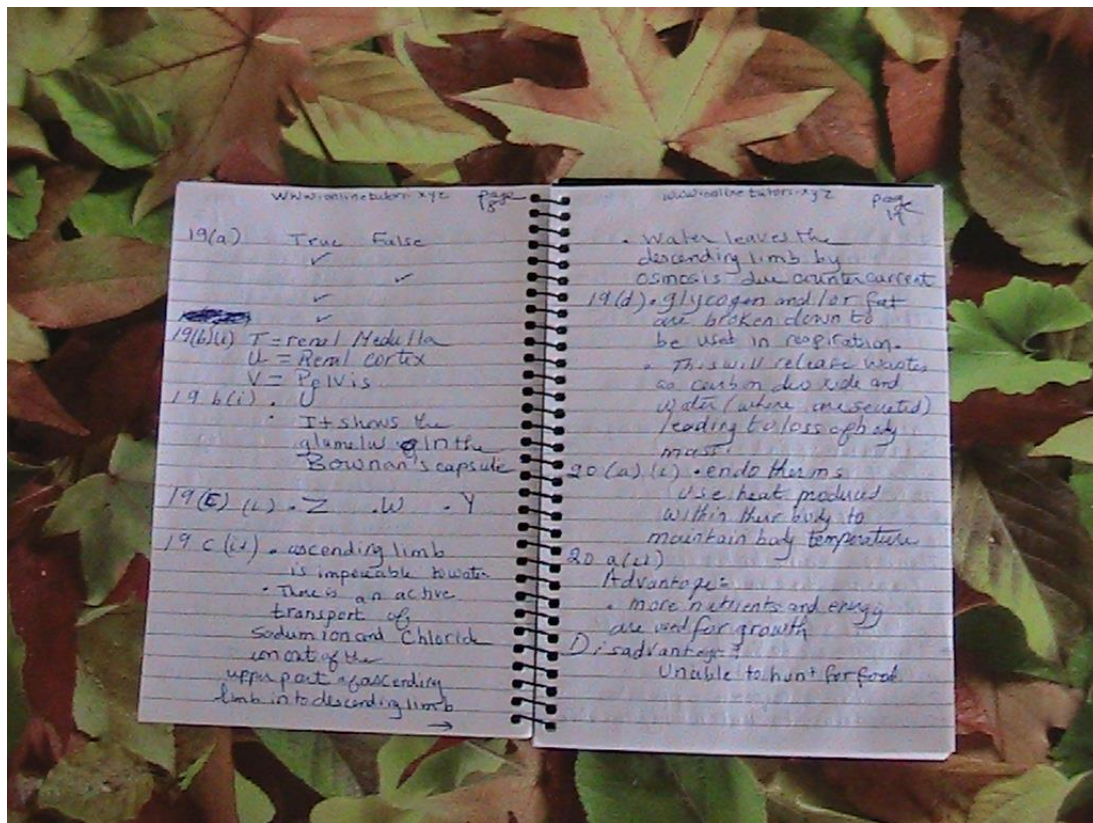 www.onlinetutors.xyz page 18
19(a) True False
✓
✓
✓
✓
19(b)(i) T = renal Medulla
U = Renal cortex
V = Pelvis
19 b(i) . U
. It shows the
in the
Bowman's capsule
19(C) (i) . Z . W . Y
19 c (ii) . ascending limb
is impereable to water
. There is an active
transport of
Sodium ion and Chloride
ion out of the
upper part of ascending
limb in to descending limb
→
www.onlinetutors.xyz page 19
. Water leaves the
descending limb by
osmosis due countercurrent
19(d) . glycogen and/or fat
are broken down to
be used in respiration.
. This will release wastes
as carbon dioxide and
water (where are secreted)
leading to loss of body
mass.
20 (a) (i) . endotherms
use heat produced
within their body to
maintain body temperature
20 a(ii)
Advantage:
. more nutrients and energy
are used for growth
Disadvantage:
Unable to hunt for food